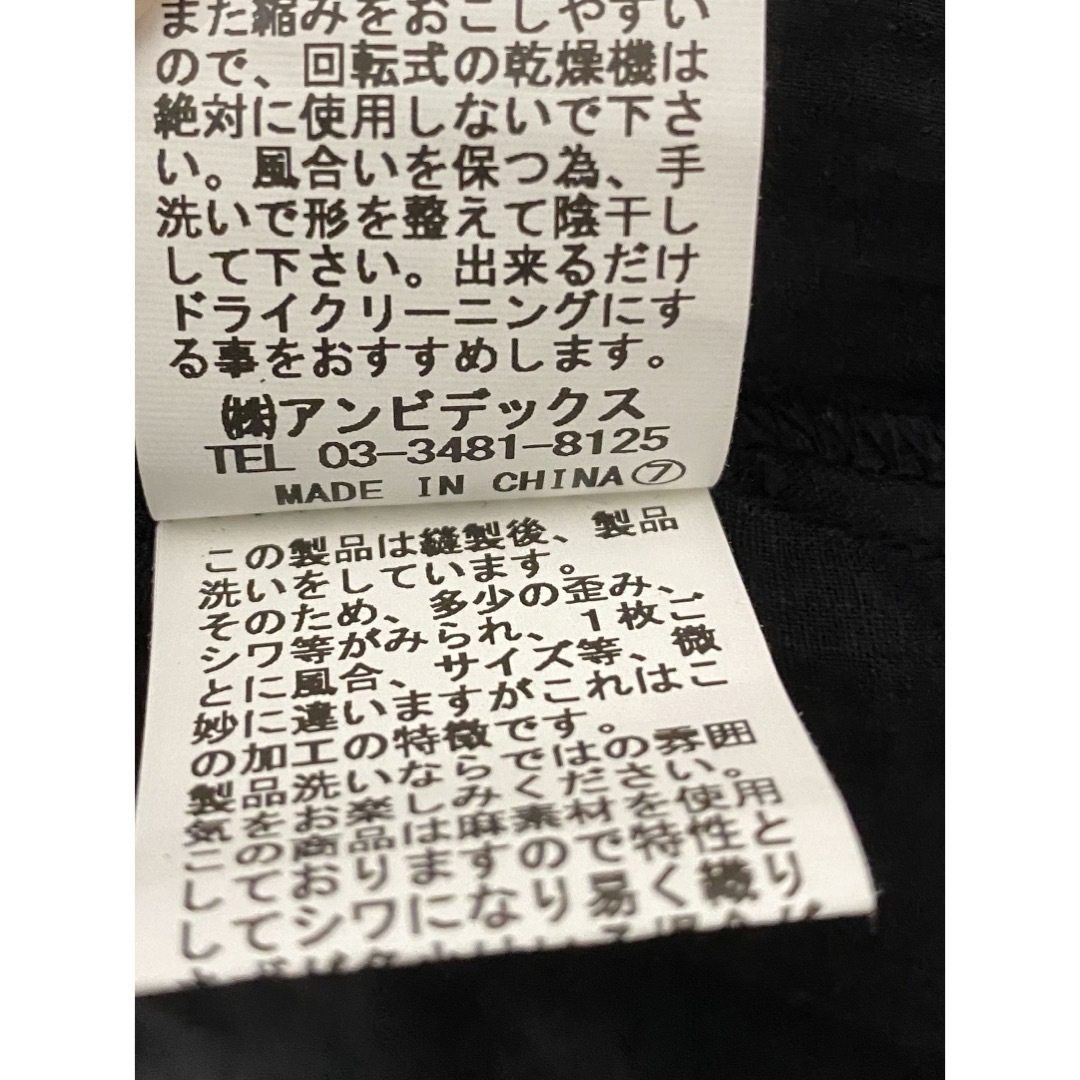 また縮みをおこしやすい
ので、回転式の乾燥機は
絶対に使用しないで下さ
い。風合いを保つ為、手
洗いで形を整えて陰干し
して下さい。出来るだけ
ドライクリーニングにす
る事をおすすめします。
㈱アンビデックス
TEL 03-3481-8125
MADE IN CHINA⑦
この製品は縫製後、製品
洗いをしています。
そのため、多少の歪み、
シワ等がみられ、1枚ご
とに風合、サイズ等、微
妙に違いますがこれはこ
の加工の特徴です。
製品洗いならではの雰囲
気をお楽しみください。
この商品は麻素材を使用
しております ので特性と
してシワになり易く織り